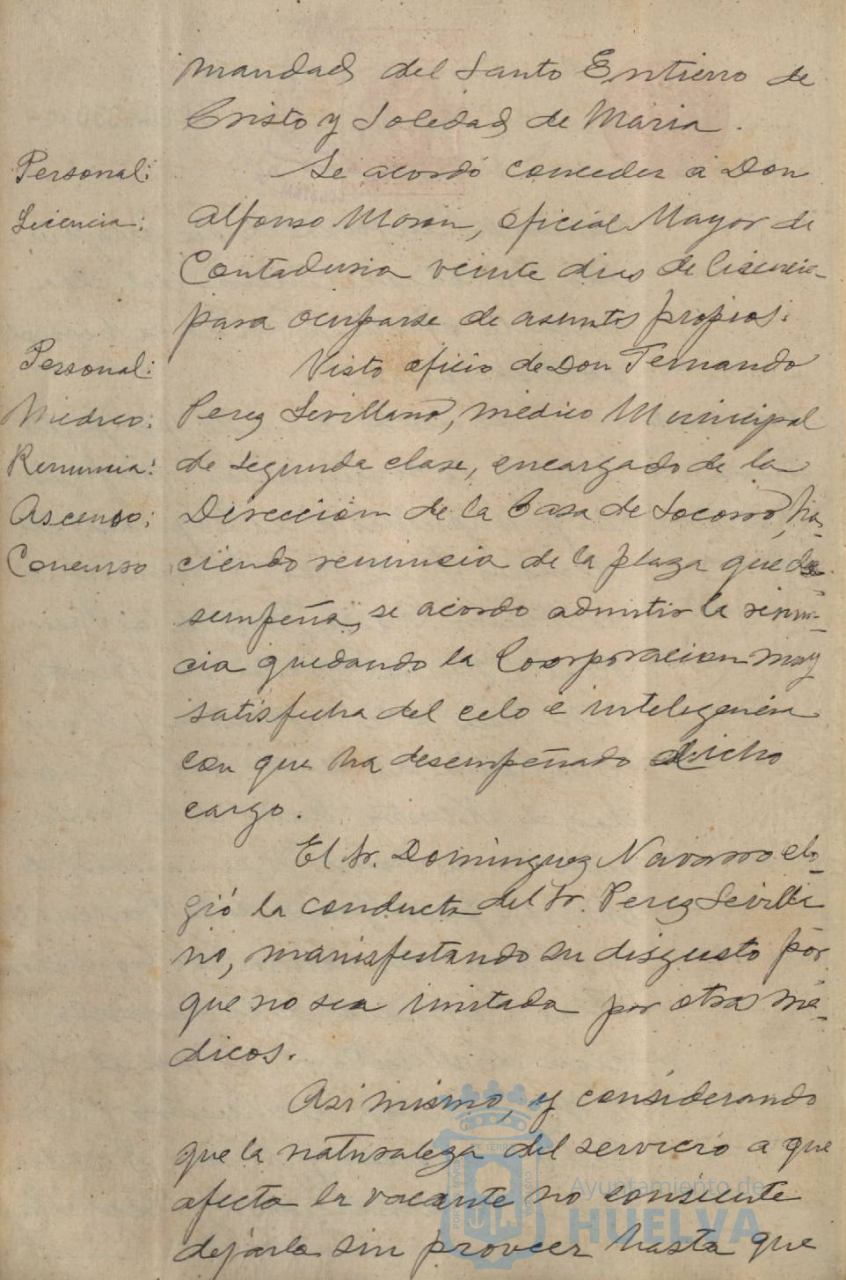 mandad del Santo Entierro de
Cristo y Soledad de Maria.
Personal:
Licencia:
Se acordó conceder a Don
Alfonso Moron, oficial Mayor de
Contaduria veinte dias de licencia
para ocuparse de asuntos propios.
Personal:
Medico:
Renuncia:
Ascenso:
Concurso
Visto oficio de Don Fernando
Perez Sevillano, médico Municipal
de segunda clase, encargado de la
Dirección de la Casa de Socorro, ha-
ciendo renuncia de la plaza que de-
sempeña, se acordo admitir la renun-
cia quedando la Corporacion muy
satisfecha del celo é inteligencia
con que ha desempeñado dicho
cargo.
El Sr. Dominguez Navarro elo-
gió la conducta del Sr. Perez Sevilla
no, manisfestando su disgusto por
que no sea imitada por otros mé-
dicos.
Asi mismo, y considerando
que la naturaleza del servicio a que
afecta la vacante no consiente
dejarla sin proveer hasta que
Ayuntamiento de
HUELVA